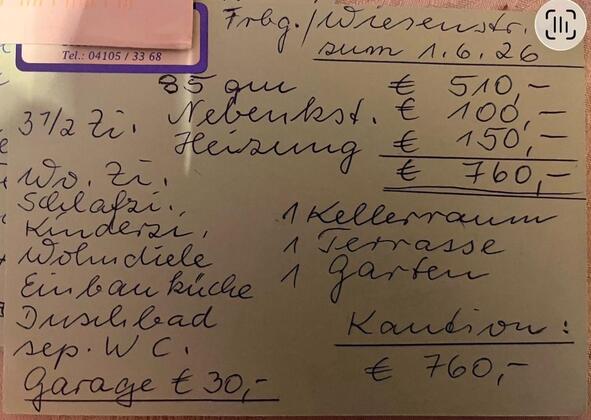 Frbg./Wiesenstr.
zum 1.6.26
Tel.: 04105 / 33 68
85 qm € 510,-
3 1/2 Zi. Nebenkst. € 100,-
Heizung € 150,-
€ 760,-
Wo. Zi.
Schlafzi.,
Kinderzi,
Wohndiele
Einbauküche
Duschbad
sep. WC.
Garage € 30,-
1 Kellerraum
1 Terrasse
1 Garten
Kaution:
€ 760,-